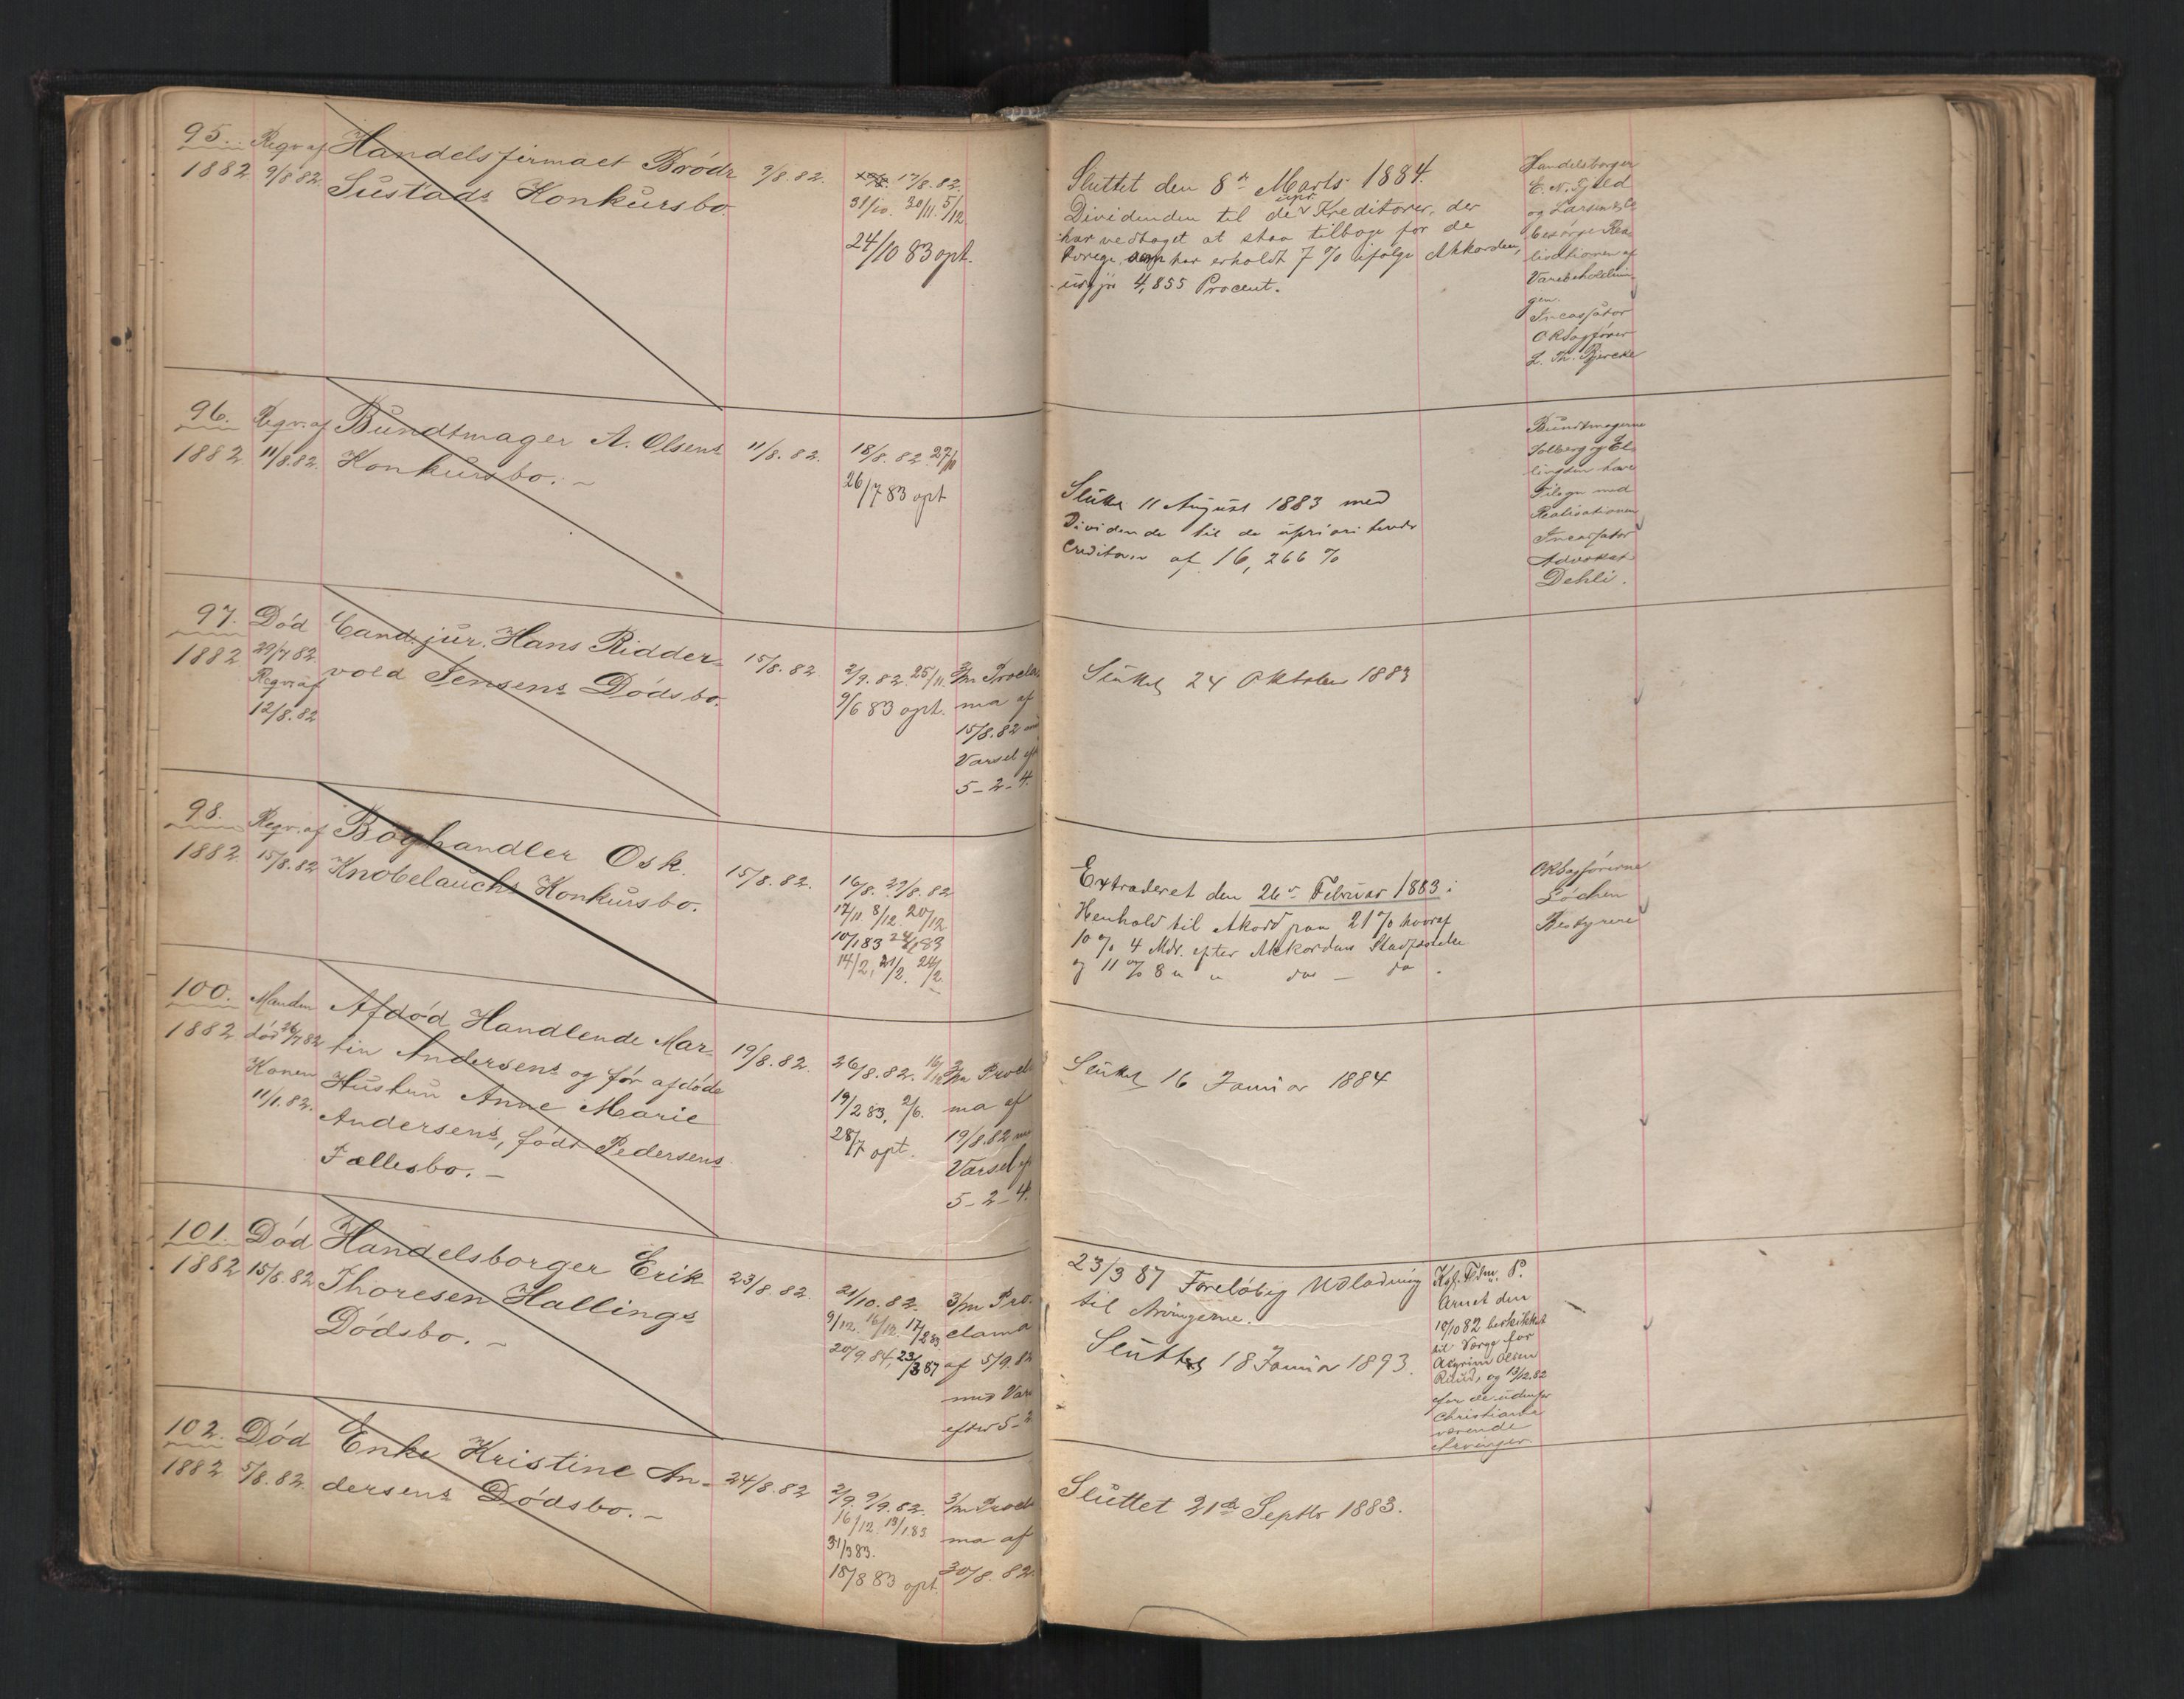 95. Reqv. af Handelsfirmaet Brödr 9/8.82. 17/8.82.
1882 9/882. Sustads Konkursbo. 31/10. 30/11. 5/12
24/10 83 opt.
Sluttet den 8de Marts 1884.
upr.
Dividenden til de Kreditorer, der
har vedtaget at staa tilbage for de
øvrige, som har erholdt 7 % ifølge Akkorden,
udgjør 4,855 Procent.
Handelsborger
E. N. Fjeld
og Larsen & Co
besørge Rea
lisationen af
Varebeholdnin
gen.
Incassator
ORSagfører
L. Th. Bjercke
96. Reqv. af Bundtmager A. Olsens 11/8.82. 18/8.82. 27/10
1882 11/8.82. Konkursbo. –
26/7 83 opt
Sluttet 11 August 1883 med
Dividende til de upriariterede
Creditorer af 16,266 %
Bundtmagerne
Solberg og El
lingsen have
Tilsyn med
Realisationen
Incassator
Advokat
Dehli.
97. Död Cand. jur. Hans Ridder- 15/8.82 2/9.82. 25/11. 3/m Procla
1882 29/7 82 vold Jensens Dödsbo. 9/6 83 opt. ma af
Reqv. af 15/8.82 med
12/8.82 Varsel eft
5-2-4.
Sluttet 24 Oktober 1883
98. Reqv. af Boghandler Osk. 15/8.82. 16/8. 29/8.82
1882 15/8.82 Knobelauchs Konkursbo. 17/11. 8/12 20/12
10/1 83 24/1 83
14/2, 21/2. 24/2.
Extraderet den 26de Februar 1883 i
Henhold til Akord paa 21 % hvoraf
10 % 4 Mdr. efter Akkordens Stadfæstelse
og 11 % 8 " " do — do.
ORSagførerne
Lochen
Bestyrere
100. Manden Afdöd Handlende Mar- 19/8.82. 26/8.82. 16/12 3/m Procla
1882 död 26/7 82 tin Andersens og för afdöde 19/2 83, 2/6. ma af
Konen Hustru Anne Marie 28/7 opt. 19/8.82 med
11/1.82. Andersens, födt Pedersens Varsel eft
Fællesbo. – 5-2-4.
Sluttet 16 Januar 1884
101. Död Handelsborger Erik 23/8.82. 21/10.82. 3/m Pro-
1882 15/8.82 Thoresen Hallings 9/12. 16/12. 17/2 83. clama
Dödsbo. – 20/9.84, 23/3 87 af 5/9.82
med Vars
efter 5-2
23/3 87 Foreløbig Udlodning
til Arvingerne.
Sluttet 18 Januar 1893.
Kgf. Fldm. P.
Arnet den
18/10 82 beskikket
til Værge for
Asgrim Olsen
Ruud, og 13/12.82
for de udenfor
Christiania
værende
Arvinger.
102. Död Enke Kristine An- 24/8.82 2/9. 9/9.82. 3/m Procla
1882 5/8.82. dersens Dödsbo. – 16/12. 13/1.83. ma af
31/3 83. 30/8.82.
18/8 83 opt.
Sluttet 21de Septbr 1883.